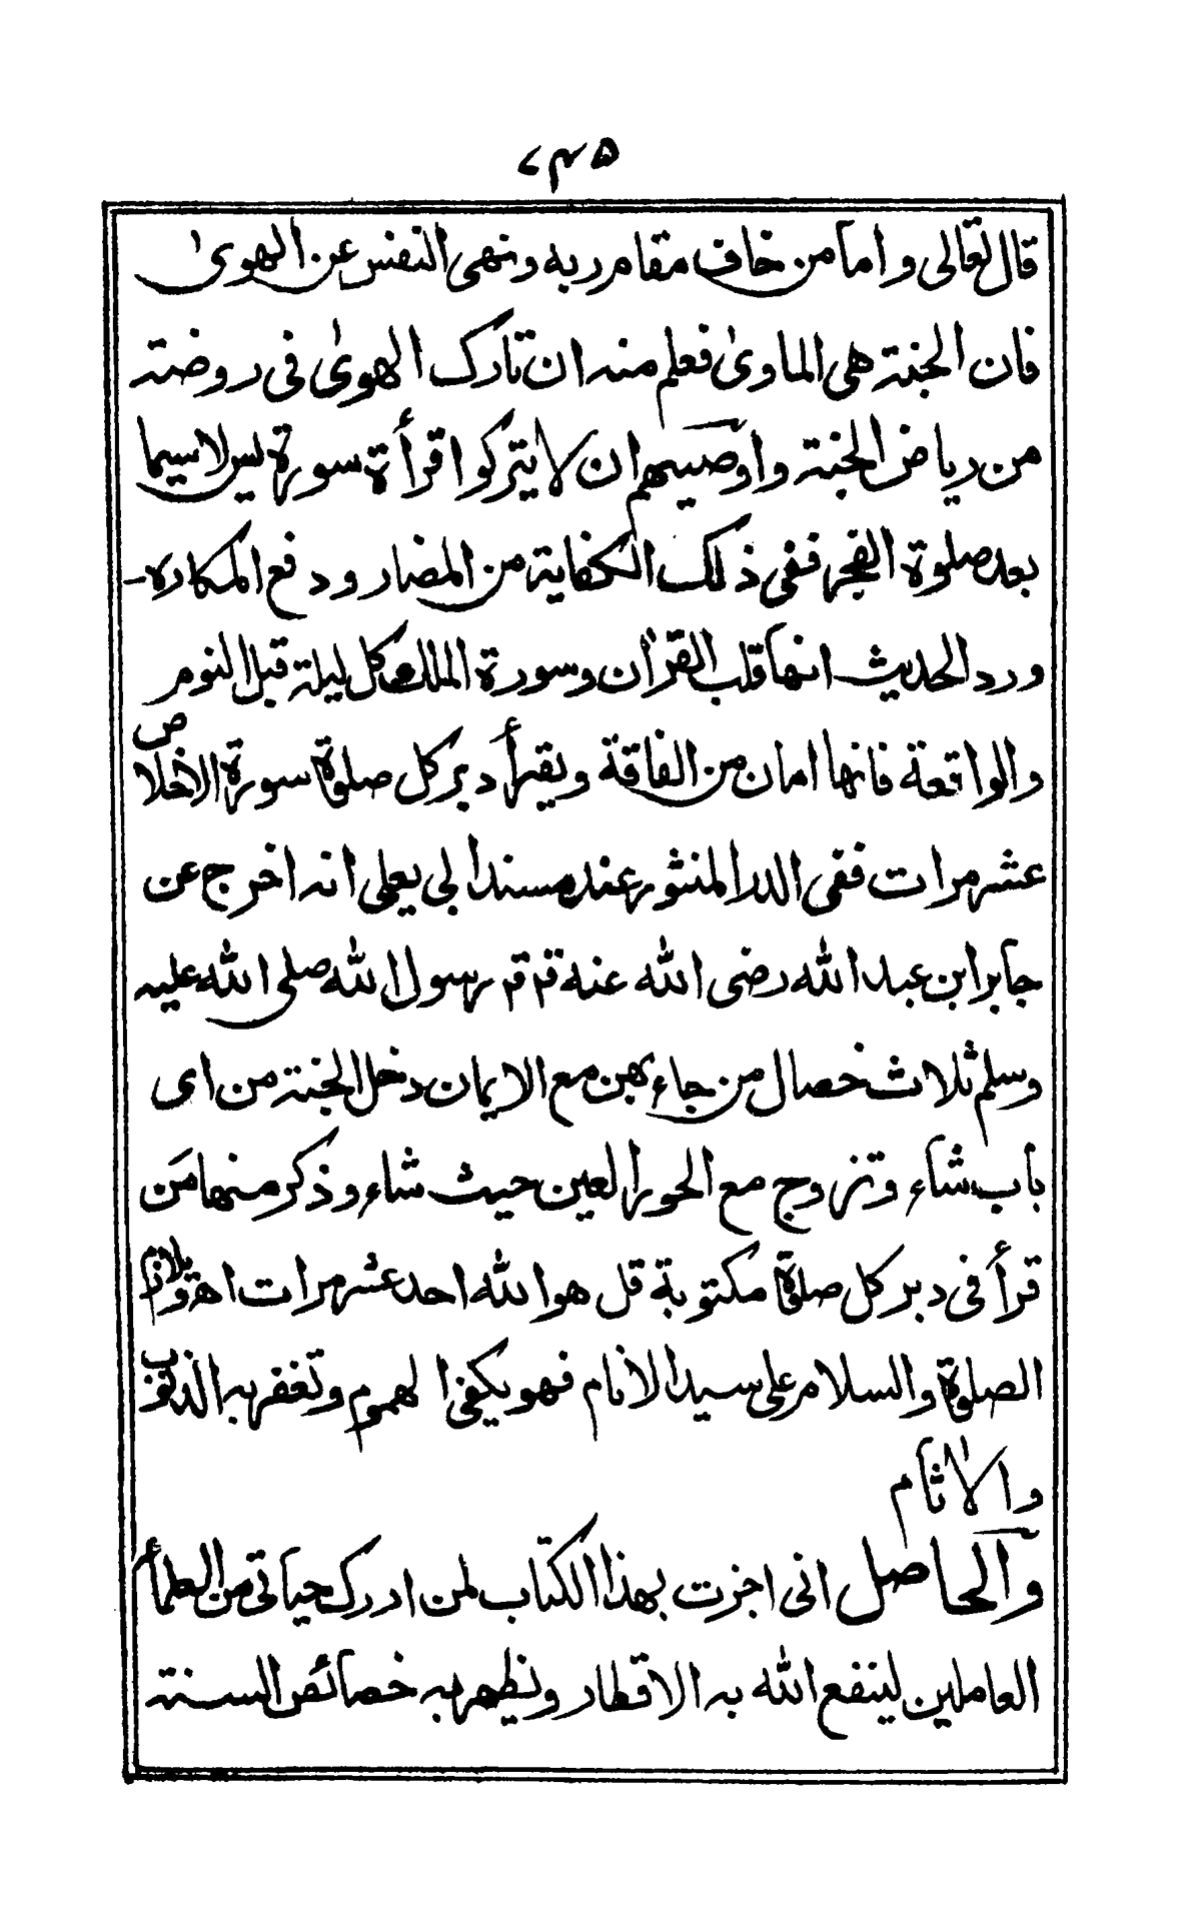 ۲۴۵
قال تعالى واما من خاف مقام ربه ونهى النفس عن الهوىٰ
فان الجنة هي الماوىٰ فعلم منه ان تارك الهوىٰ فى روضة
من رياض الجنة واوصيهم ان لا يتركوا قرأة سورة يس لا سيما
بعد صلوة الفجر ففى ذلك الكفاية من المضار ودفع المكاره-
ورد الحديث انها قلب القرآن وسورة الملك كل ليلة قبل النوم
والواقعة فانها امان من الفاقة ويقرأ دبر كل صلوة سورة الاخلاص
عشر مرات ففى الدر المنثور عند مسند ابى يعلى انه اخرج عن
جابر ابن عبد الله رضى الله عنه قم قم رسول الله صلى الله عليه
وسلم ثلاث خصال من جاء بهن مع الايمان دخل الجنة من اى
باب شاء وتزوج مع الحور العين حيث شاء وذكر منها مَن
قرأ فى دبر كل صلوة مكتوبة قل هو الله احد عشر مرات اھ ويلازم
الصلوة والسلام على سيد الانام فهو يكفى الهموم وتغفر به الذنوب
والاٰثام
والحاصل انى اجزت بهذا الكتاب لمن ادرك حياتى من العلمأ
العاملين لينفع الله به الاقطار ونظهر به خصائص السنة